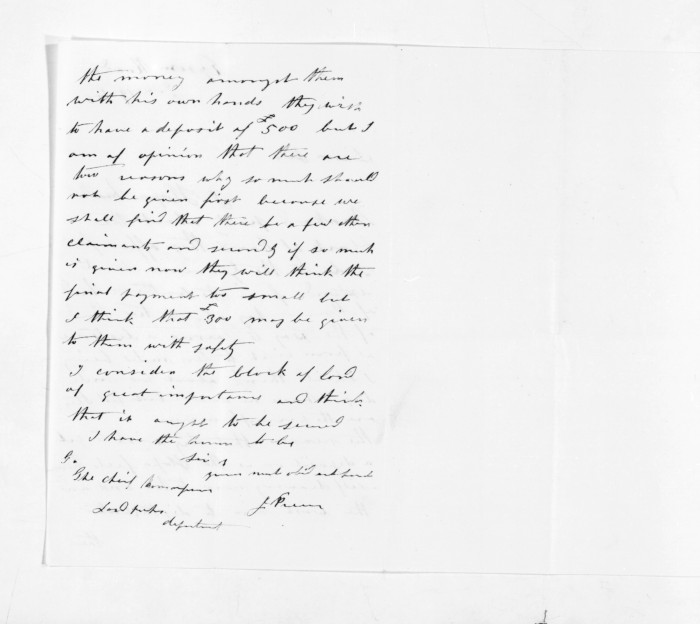 the money amongst them
with his own hands they wish
to have a deposit of £500 but I
am of opinion that there are
two reasons why so much should
not be given first because we
shall find that there be a few other
claimants and secondly if so much
is given now they will think the
final payment too small but
I think that £300 may be given
to them with safety
I consider the block of land
of great importance and think
that it aught to be secured
I have the honor to be
Sir
your most obd and Servt
The Chief Commissioner
Land
department